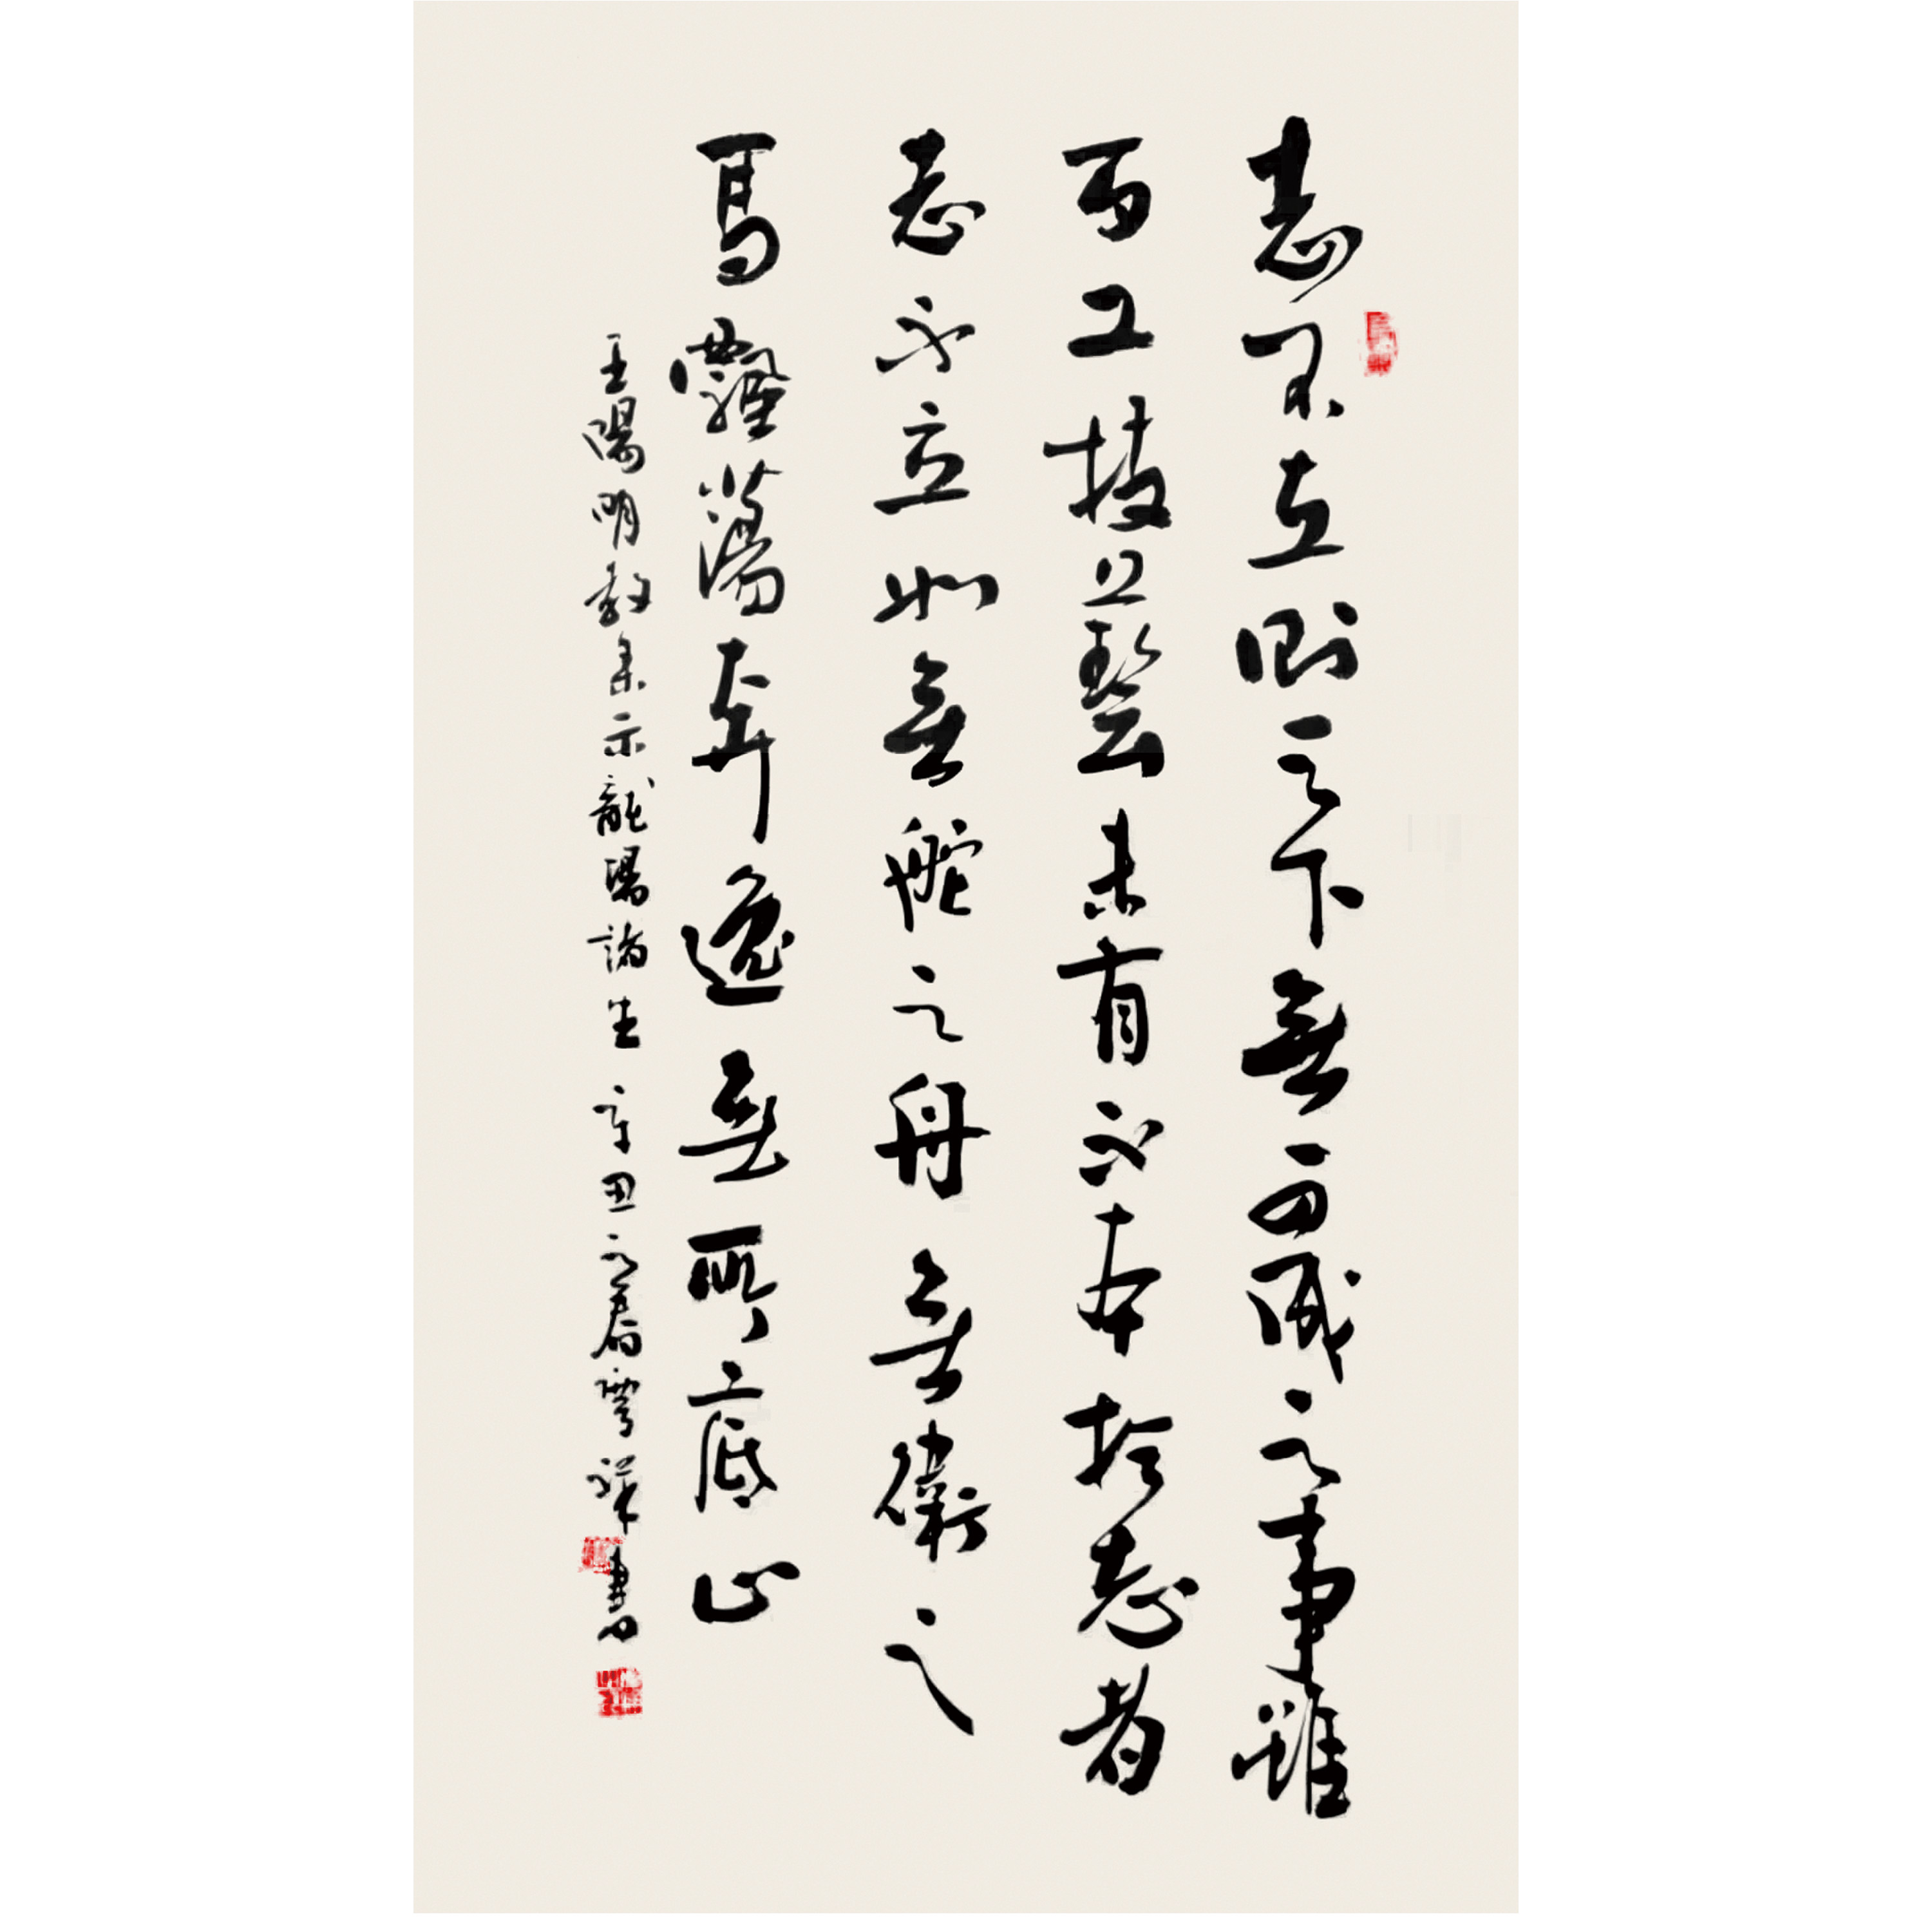 志不立則天下無可成之事雖
百工技藝未有不本於志者
志不立如無舵之舟無銜之
馬飄蕩奔逸無所底止
王陽明教条示龍場諸生 辛丑之春雲祥書